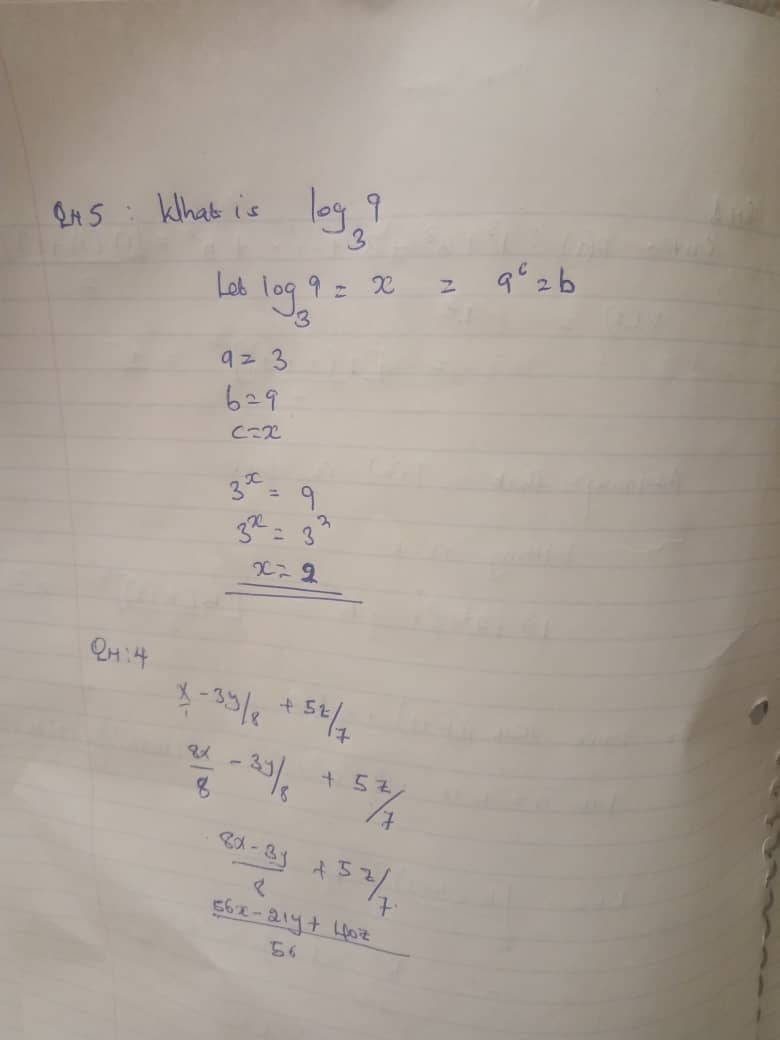 Qn 5 : What is log₃ 9
Let log₃ 9 = x = aᶜ = b
a = 3
b = 9
c = x
3ˣ = 9
3ˣ = 3²
x = 2
Qn:4
x/1 - 3y/8 + 5z/7
8x/8 - 3y/8 + 5z/7
8x - 3y/8 + 5z/7.
56x - 21y + 40z/56